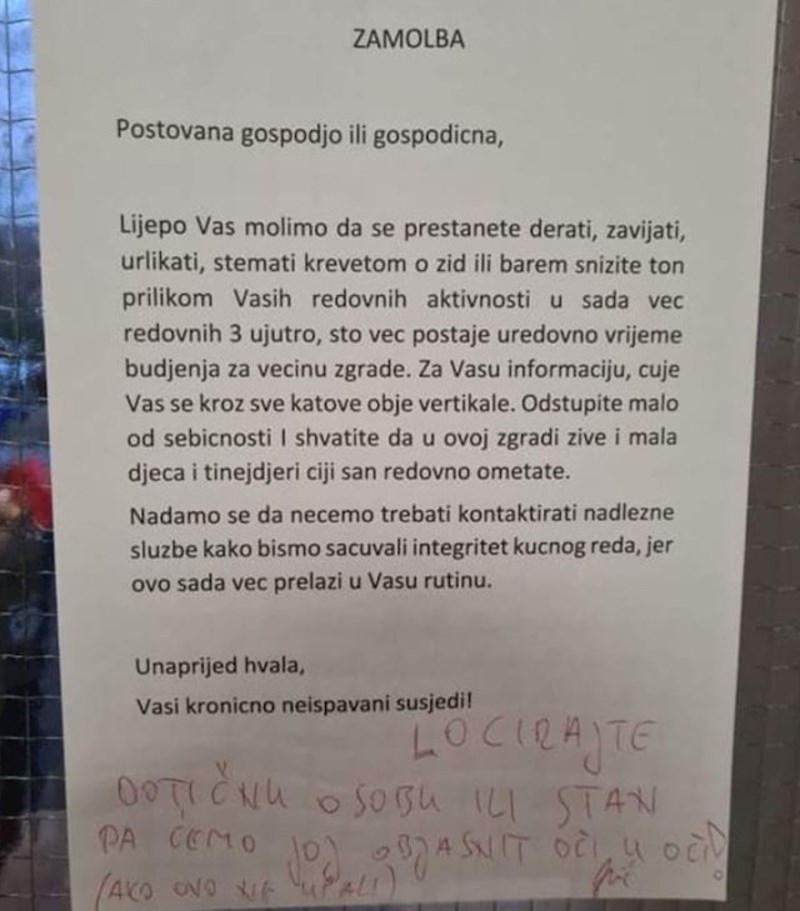 ZAMOLBA
Postovana gospodjo ili gospodicna,
Lijepo Vas molimo da se prestanete derati, zavijati,
urlikati, stemati krevetom o zid ili barem snizite ton
prilikom Vasih redovnih aktivnosti u sada vec
redovnih 3 ujutro, sto vec postaje uredovno vrijeme
budjenja za vecinu zgrade. Za Vasu informaciju, cuje
Vas se kroz sve katove obje vertikale. Odstupite malo
od sebicnosti I shvatite da u ovoj zgradi zive i mala
djeca i tinejdjeri ciji san redovno ometate.
Nadamo se da necemo trebati kontaktirati nadlezne
sluzbe kako bismo sacuvali integritet kucnog reda, jer
ovo sada vec prelazi u Vasu rutinu.
Unaprijed hvala,
Vasi kronicno neispavani susjedi!
LOCIRAJTE
DOTIČNU OSOBU ILI STAN
PA ĆEMO JOJ OBJASNIT OČI U OČI!
(AKO OVO NIJE UPALI)